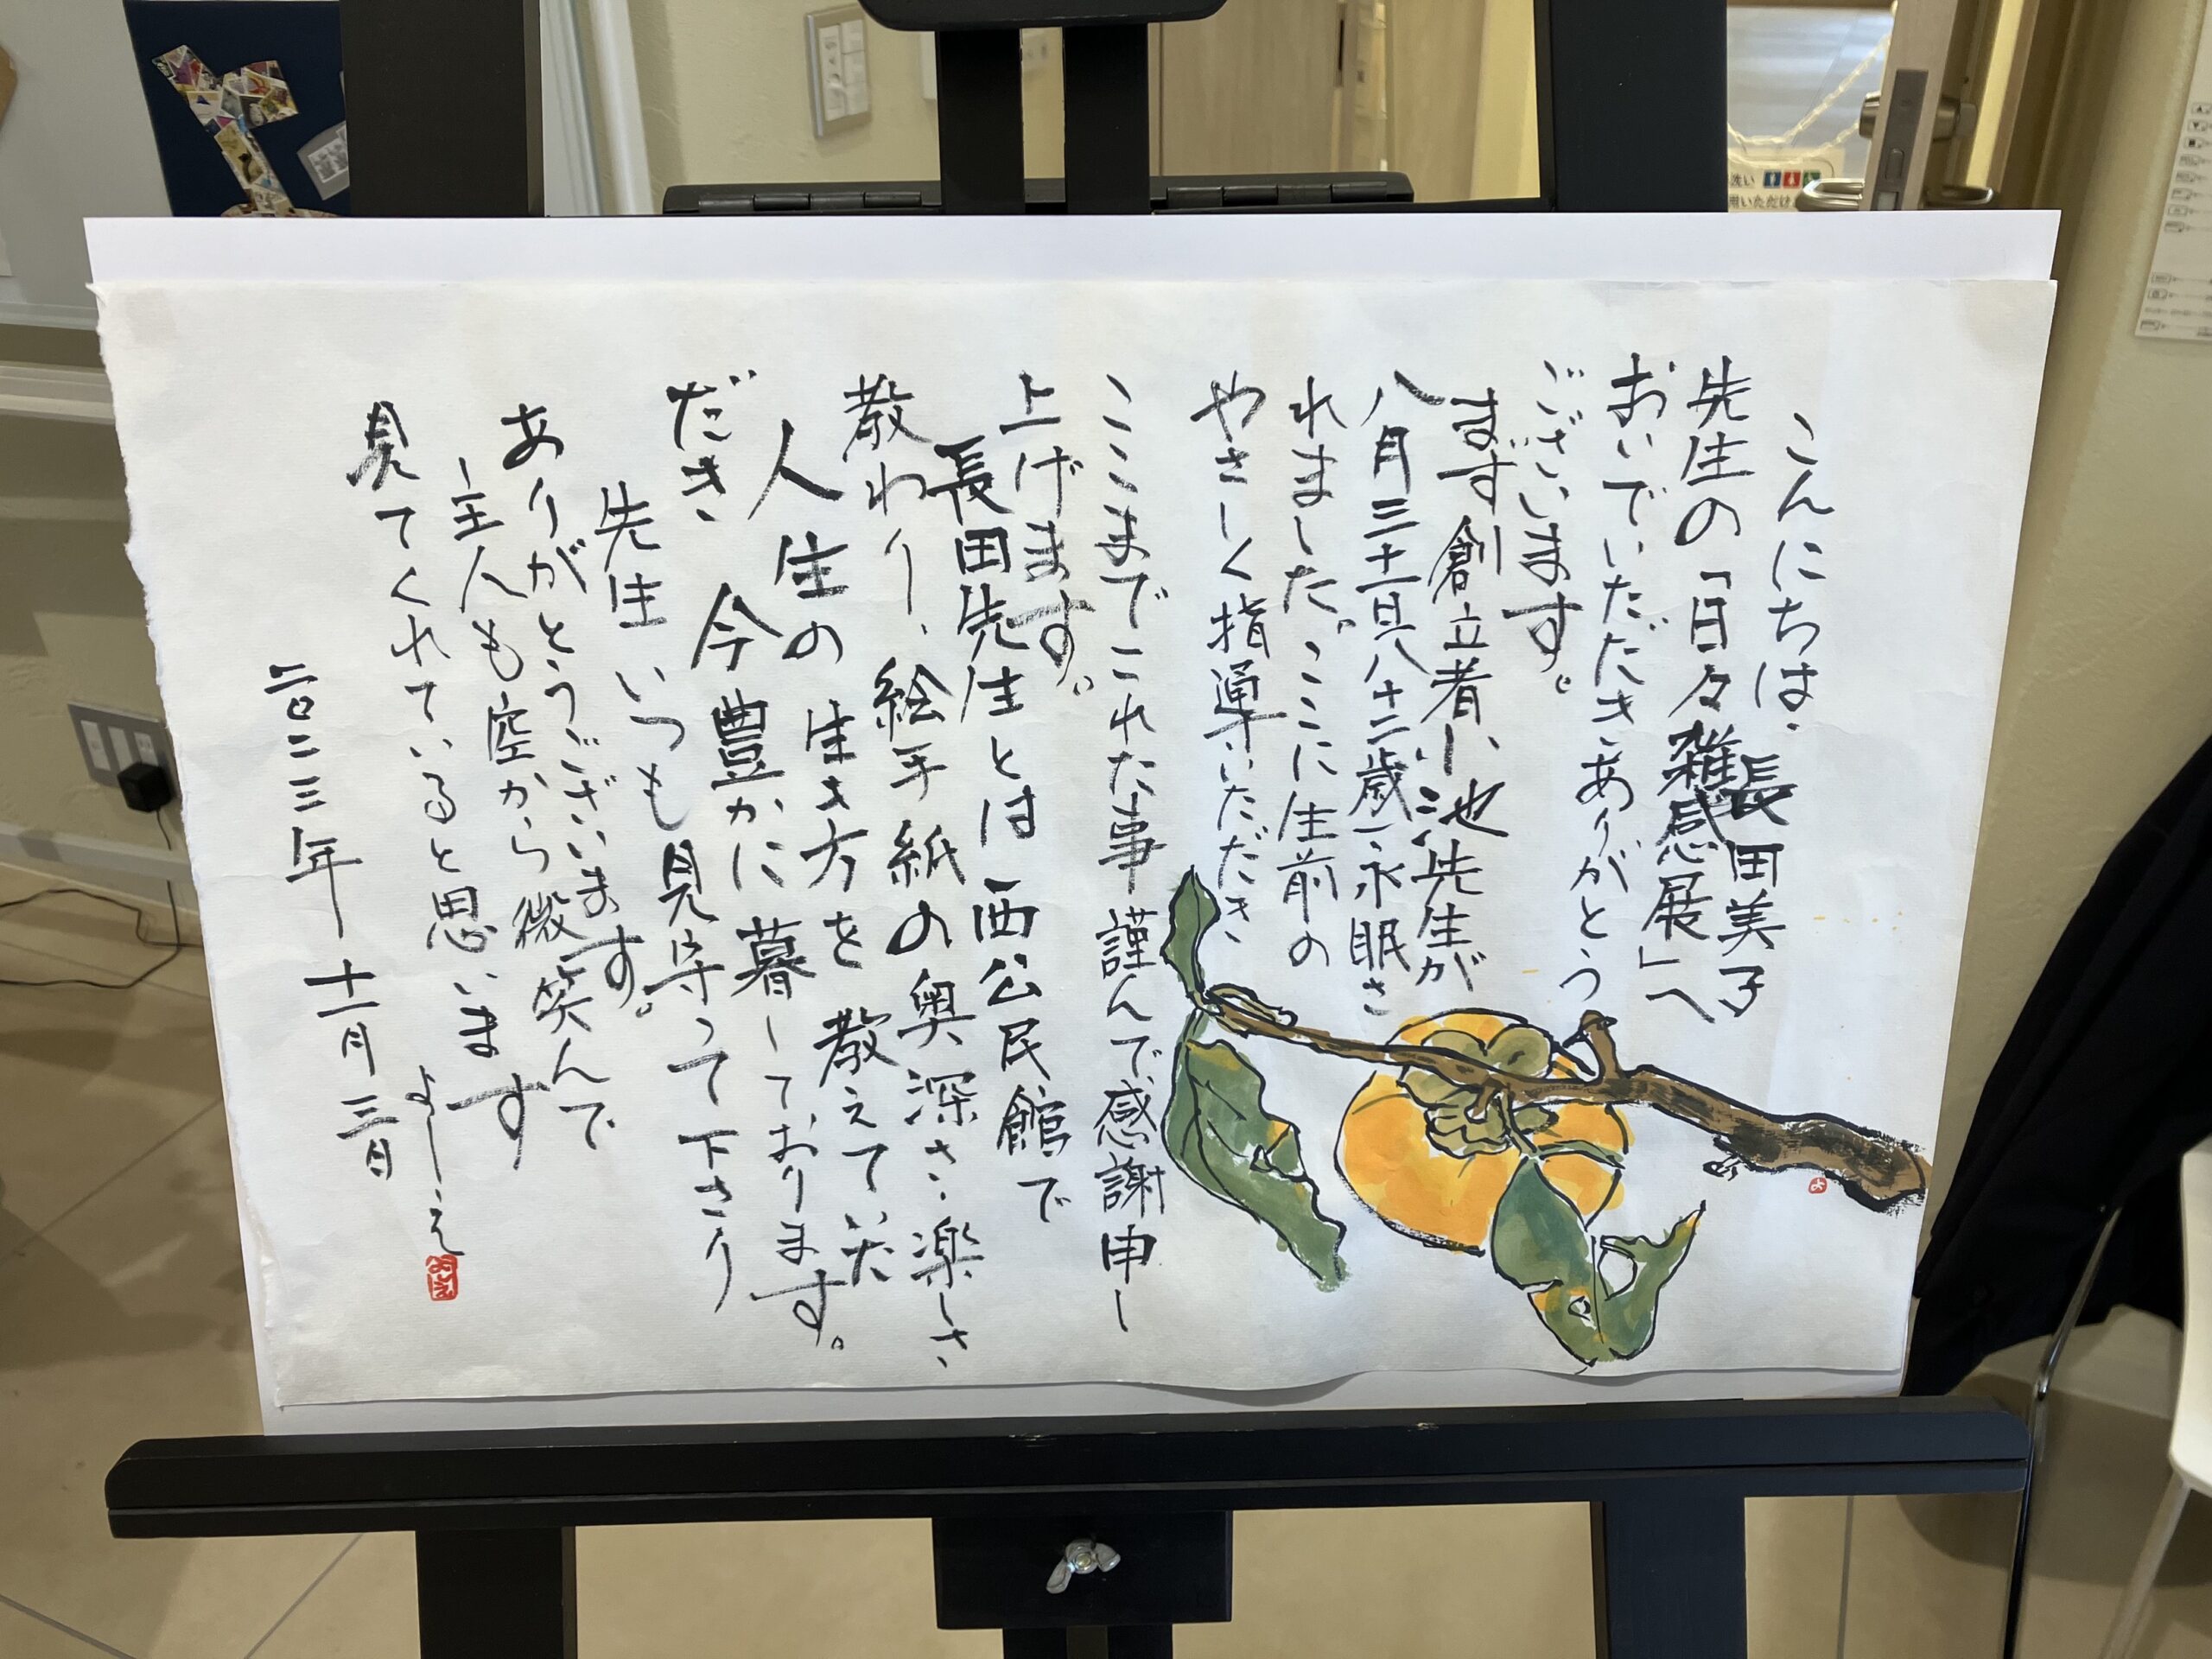 こんにちは、長田美子
先生の「日々雑感展」へ
おいでいただき、ありがとう
ございます。
まず創立者小池先生が
八月三十一日八十二歳永眠さ
れました。ここに生前の
やさしく指導いただき、
ここまでこれた事謹んで感謝申し
上げます。
長田先生とは西公民館で
教わり、絵手紙の奥深さ、楽しさ、
人生の生き方を教えていた
だき、今豊かに暮しております。
先生いつも見守って下さり
ありがとうございます。
主人も空から微笑んで
見てくれていると思います
よしえ
二〇二三年十一月三日
よしえ
よ
洗い
用いただけ